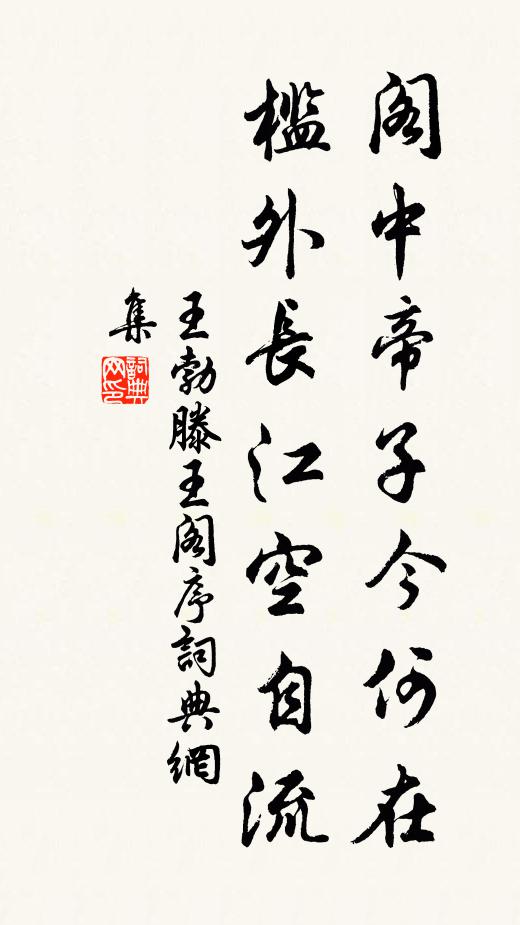 阁中帝子今何在
槛外長江空自流
王勃滕王阁序詞典網
集
詞典网印